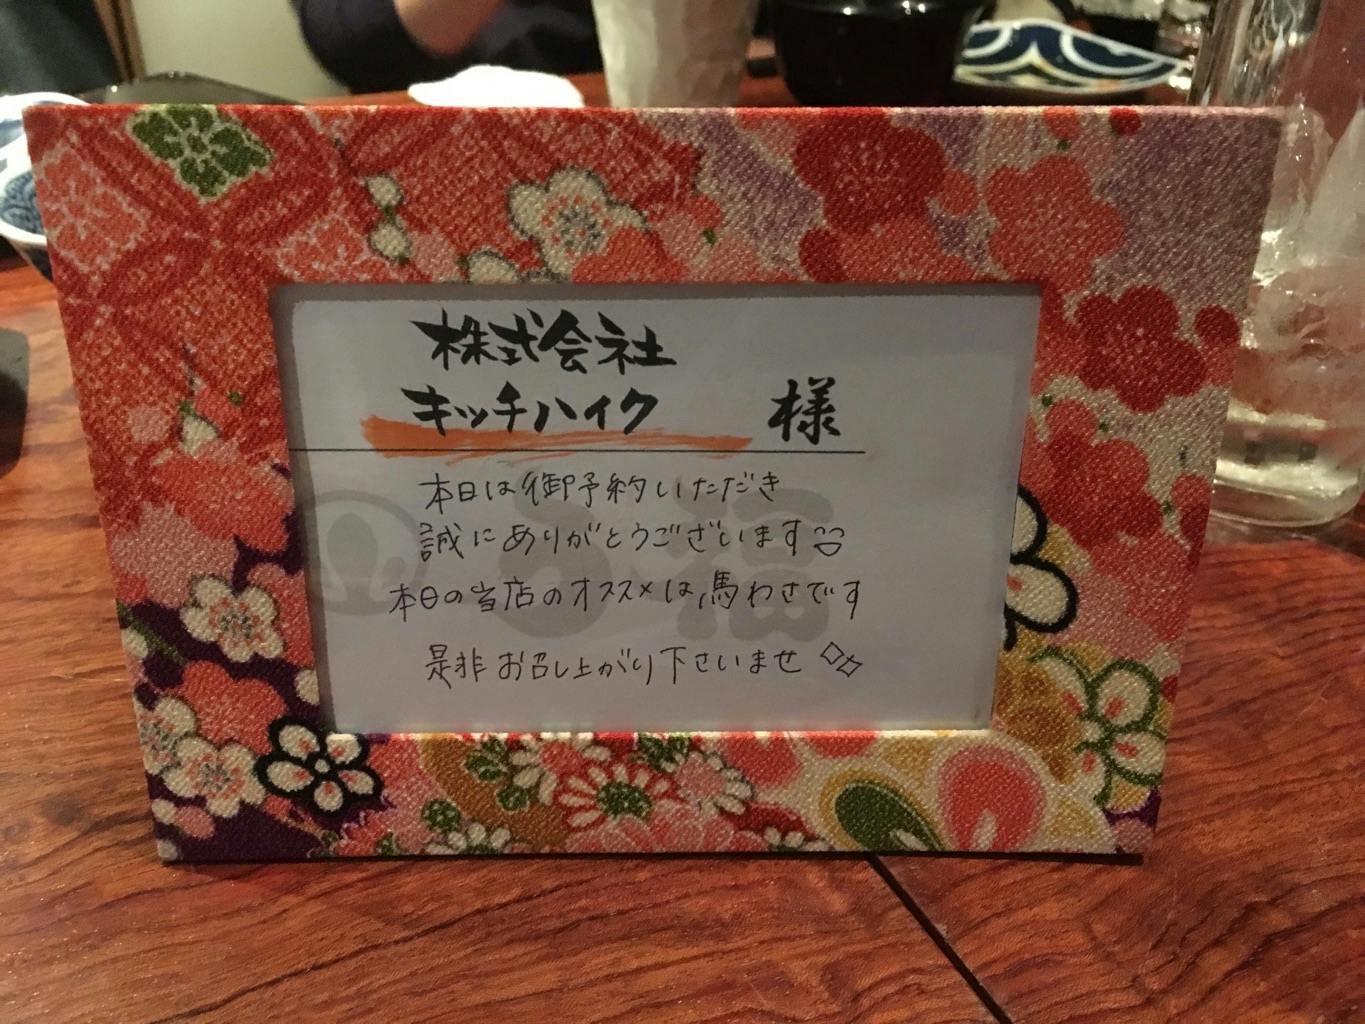 株式会社
キッチハイク 様
本日は御予約いただき
誠にありがとうございます
本日の当店のオススメは、馬わさです
是非お召し上がり下さいませ
福